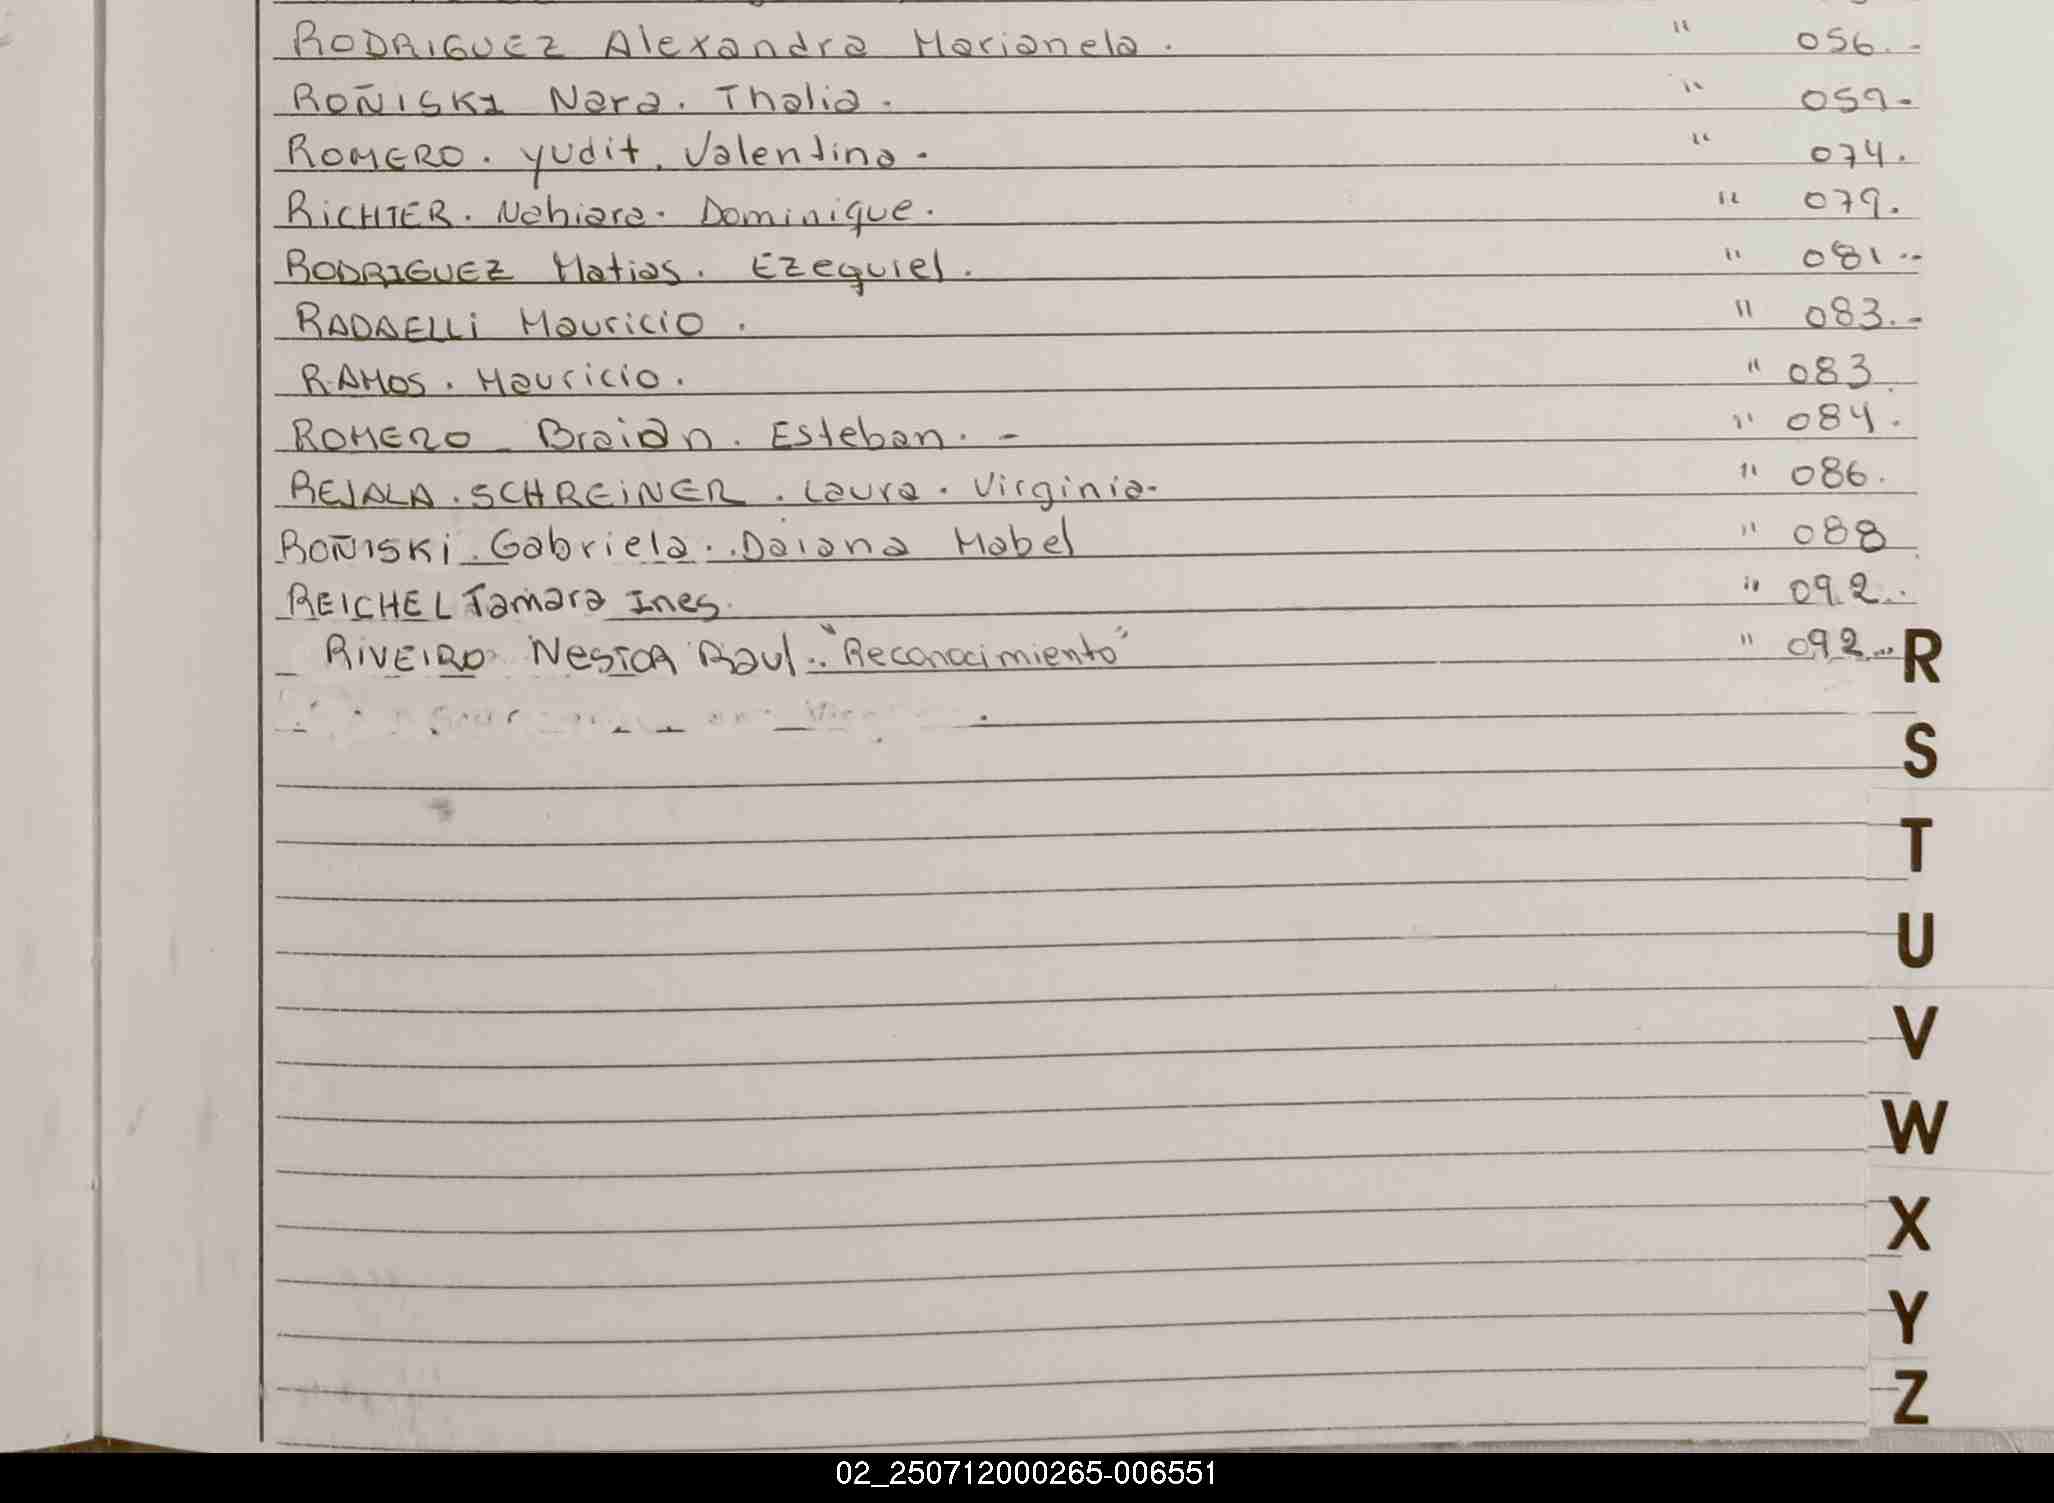 RODRIGUEZ Alexandra Marianela. " 056.-
ROÑISKI Nara. Thalia. " 059-
ROMERO. yudit. Valentina- " 074.
RiCHTER. Nahiara. Dominique. " 079.
RODRIGUEZ Matias. Ezequiel. " 081--
RADAELLi Mauricio. " 083.-
RAMOS. Mauricio. " 083.
ROMERO Braian. Esteban. - " 084.
REJALA. SCHREiNER. Laura. Virginia- " 086.
ROÑISKi. Gabriela. Daiana Mabel " 088.
REICHEL Tamara Ines. " 092..
RiVEIRO NESTOR Raul.. "Reconocimiento" " 092...
R
S
T
U
V
W
X
Y
Z
02_250712000265-006551